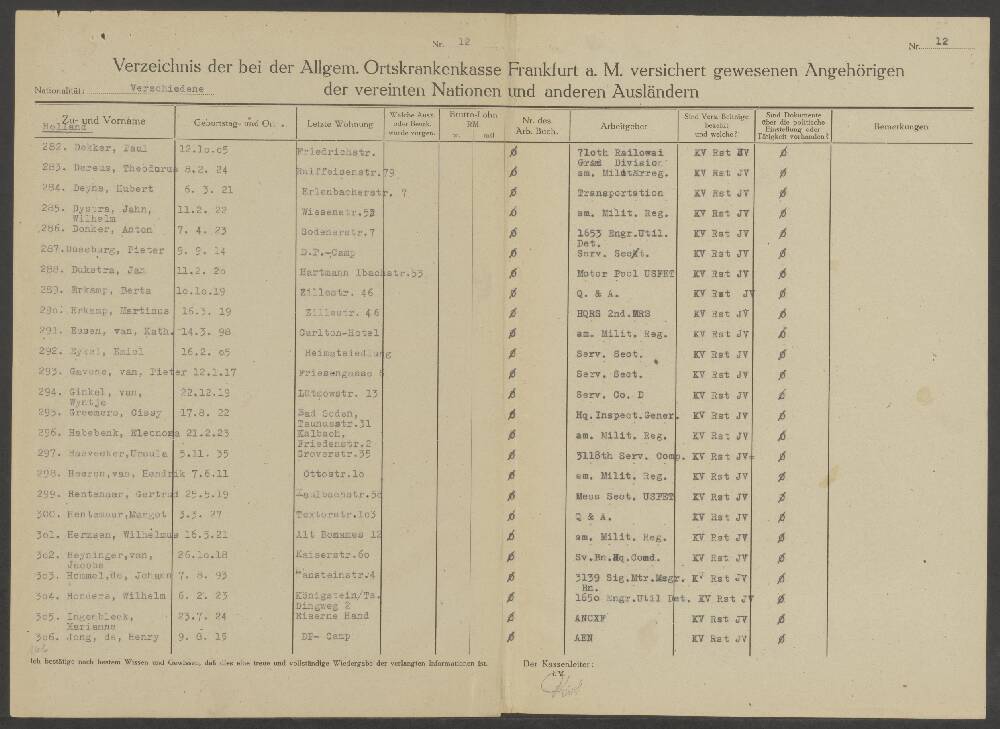 Nr. 12
Nr. 12
Verzeichnis der bei der Allgem. Ortskrankenkasse Frankfurt a. M. versichert gewesenen Angehörigen
Nationalität: Verschiedene
der vereinten Nationen und anderen Ausländern
Zu- und Vorname Geburtstag- und Ort Letzte Wohnung Welche Ausw. oder Bezuk. wurde vorgen. Brutto-Lohn RM Nr. des Arb. Buch. Arbeitgeber Sind Vers. Beiträge bezahlt und welche? Sind Dokumente über die politische Einstellung oder Tätigkeit vorhanden? Bemerkungen
Holland
282. Dekker, Paul 12.1o.o5 Friedrichstr. ø 71oth Railowai Grand Division KV Rst JV ø
283. Dereus, Theodorus 8.2. 24 Raiffeisenstr.79 ø am. Milit.Reg. KV Rst JV ø
284. Deyns, Hubert 6. 3. 21 Erlenbacherstr. 7 ø Transportation KV Rst JV ø
285. Dystra, Jahn, Wilhelm 11.2. 22 Wiesenstr.53 ø am. Milit. Reg. KV Rst JV ø
286. Donker, Anton 7. 4. 23 Sodenerstr.7 ø 1653 Engr.Util. Det. KV Rst JV ø
287. Pieter 9. 9. 14 D.P.-Camp ø Serv. Sect. KV Rst JV ø
288. Dukstra, Jan 11.2. 2o Hartmann Ibachstr.53 ø Motor Pool USFET KV Rst JV ø
289. Erkamp, Berta 1o.1o.19 Zillestr. 46 ø Q. & A. KV Rst JV ø
29o. Erkamp, Martinus 16.3. 19 Zillestr. 46 ø HQRS 2nd.MRS KV Rst JV ø
291. Essen, van, Kath. 14.3. 98 Carlton-Hotel ø am. Milit. Reg. KV Rst JV ø
292. Eykel, Emiel 16.2. o5 Heimatsiedlung ø Serv. Sect. KV Rst JV ø
293. Gavens, van, Pieter 12.1.17 Friesengasse 6 ø Serv. Sect. KV Rst JV ø
294. Ginkel, van, Wyntje 22.12.19 Lützowstr. 13 ø Serv. Co. D KV Rst JV ø
295. Greemers, Cissy 17.8. 22 Bad Soden, Taunusstr.31 ø Hq.Inspect.Gener. KV Rst JV ø
296. Habebenk, Elecnora 21.2.23 Kalbach, Friedenstr.2 ø am. Milit. Reg. KV Rst JV ø
297. Ursula 5.11. 35 Groverstr.35 ø 3118th Serv. Comp. KV Rst JV ø
298. Heeren,van, Hendrik 7.6.11 Ottostr.1o ø am. Milit. Reg. KV Rst JV ø
299. Hentenaar, Gertrud 25.5.19 Kaulbachstr.56 ø Mess Sect. USFET KV Rst JV ø
3oo. Hentenaar,Margot 3.3. 27 Textorstr.1o3 ø Q & A. KV Rst JV ø
3o1. Hermsen, Wilhelmus 16.3.21 Alt Bonames 12 ø am. Milit. Reg. KV Rst JV ø
3o2. Heyninger,van, Jacoba 26.1o.18 Kaiserstr.6o ø Sv.Bn.Hq.Comd. KV Rst JV ø
3o3. Hommel,de, Johann 7. 8. 93 Hansteinstr.4 ø 3139 Sig.Mtr.Msgr. Bn. KV Rst JV ø
3o4. Honders, Wilhelm 6. 2. 23 Königstein/Ts. Dingweg 2 ø 165o Engr.Util Det. KV Rst JV ø
3o5. Ingenbleek, Marianne 23.7. 24 Eiserne Hand ø ANCXF KV Rst JV ø
3o6. Jong, de, Henry 9. 8. 15 DP- Camp ø AEN KV Rst JV ø
Ich bestätige nach bestem Wissen und Gewissen, daß dies eine treue und vollständige Wiedergabe der verlangten Informationen ist.
Der Kassenleiter:
i.V.